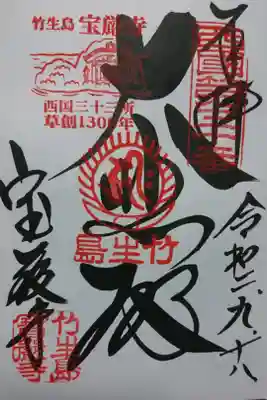 奉拝
西國第三十番
令和二.九.十八
大悲殿
竹生島
竹生島 宝厳寺
西国三十三所
草創1300年
宝厳寺
竹生島
寳嚴寺